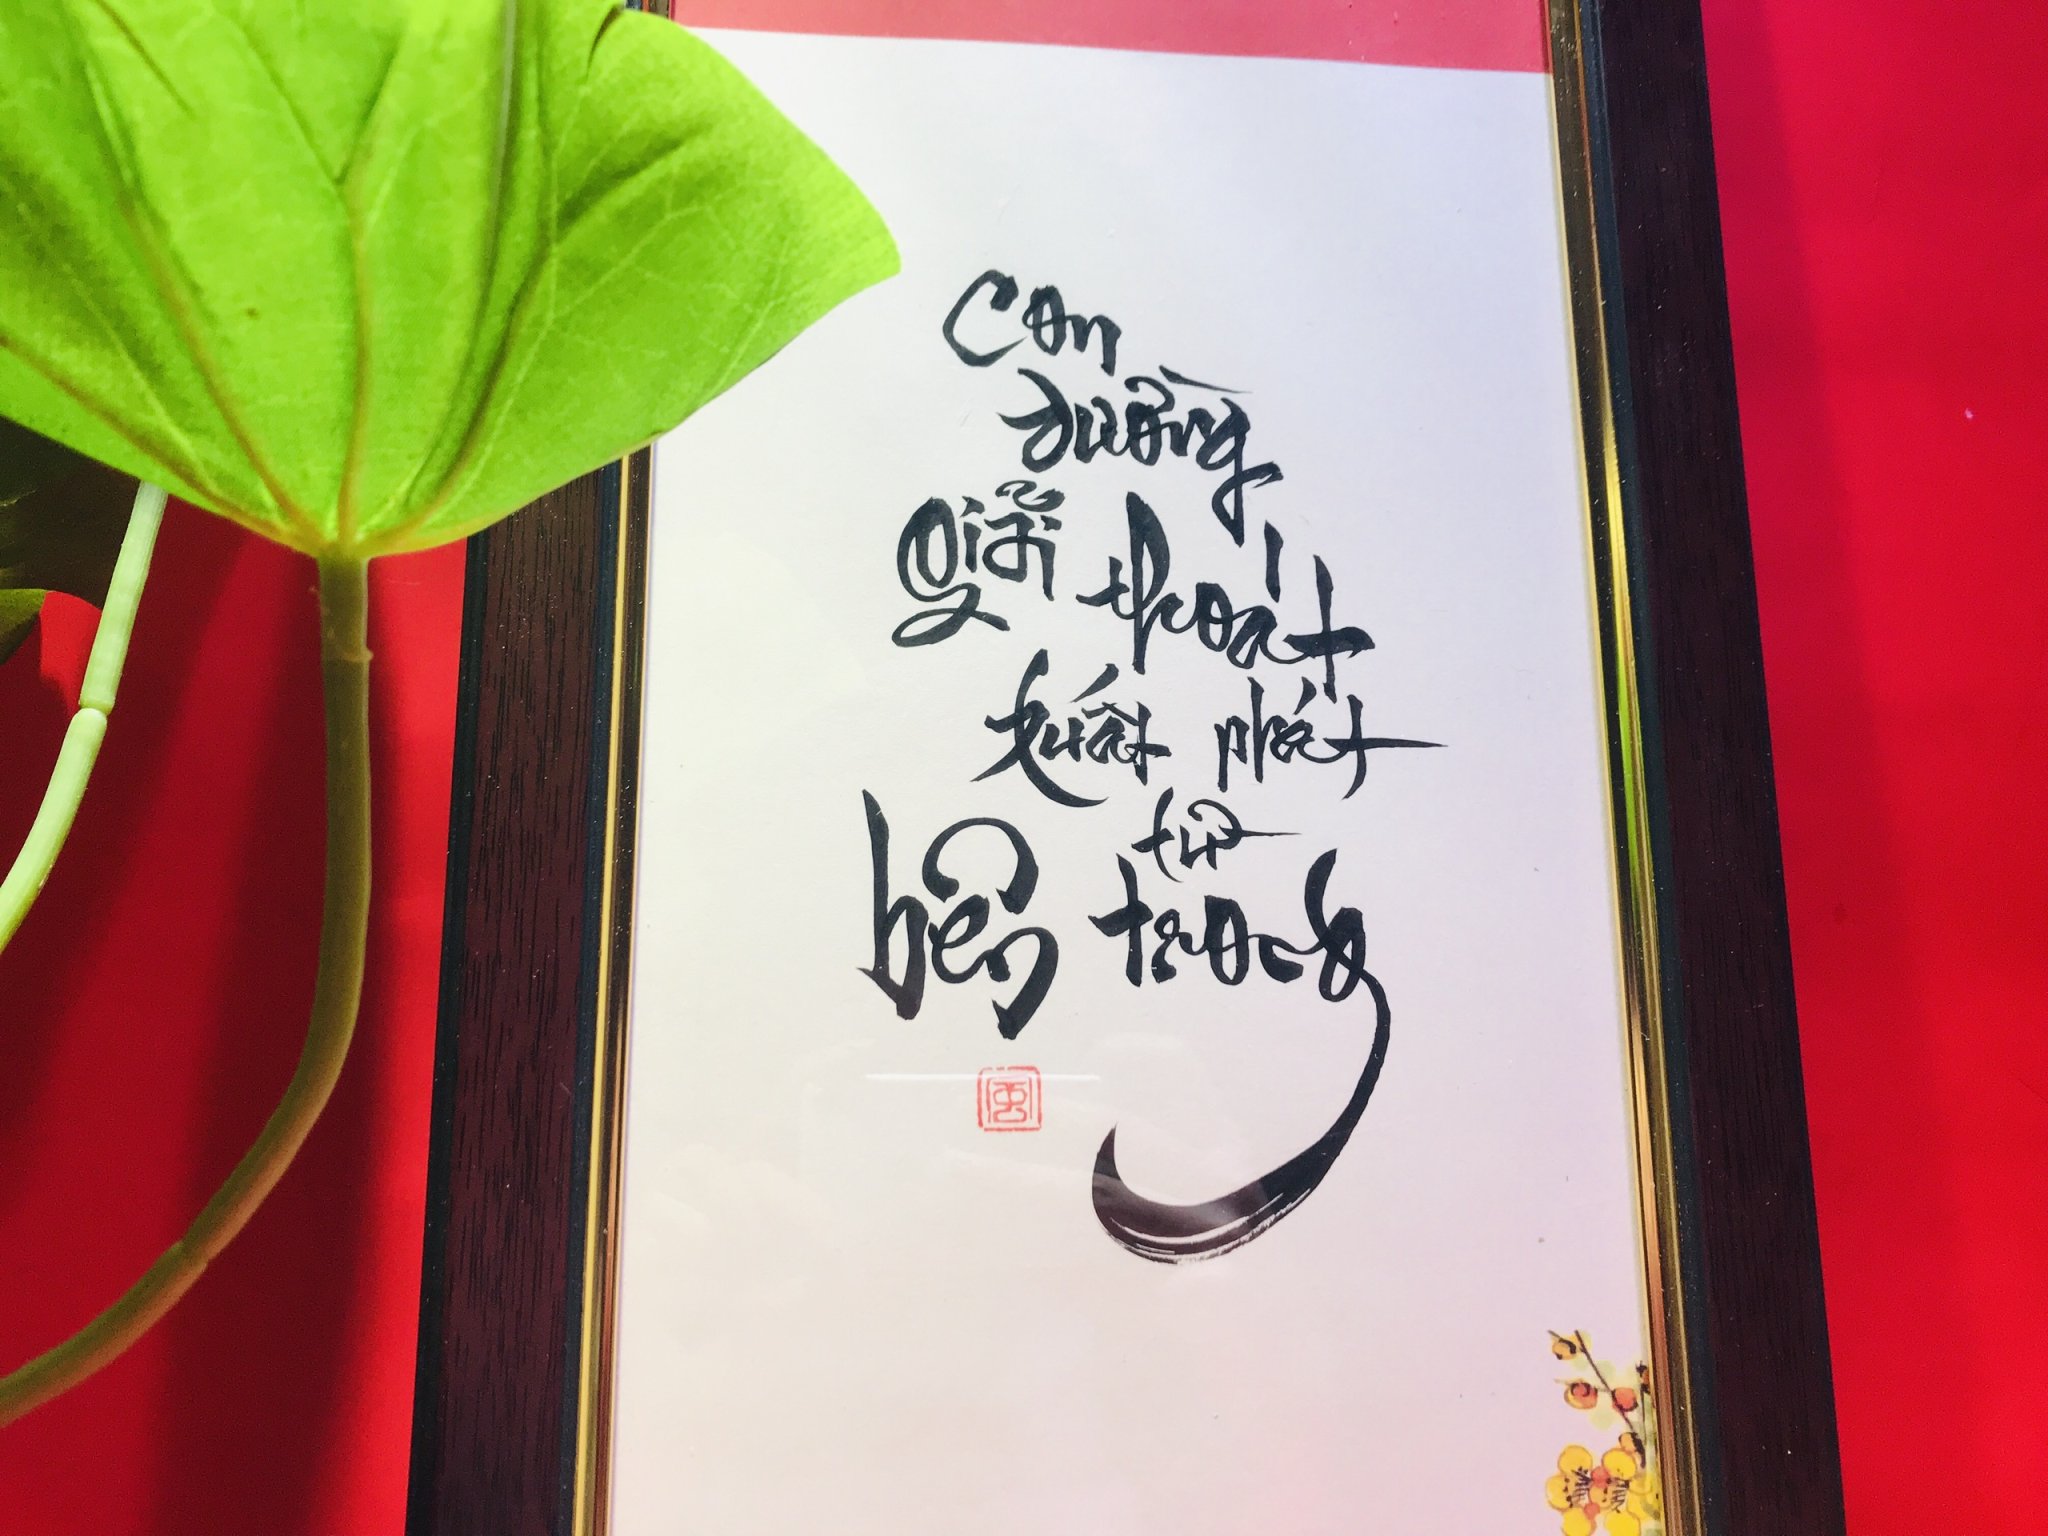 Con
đường
giải thoát
xuất phát
từ
bên trong